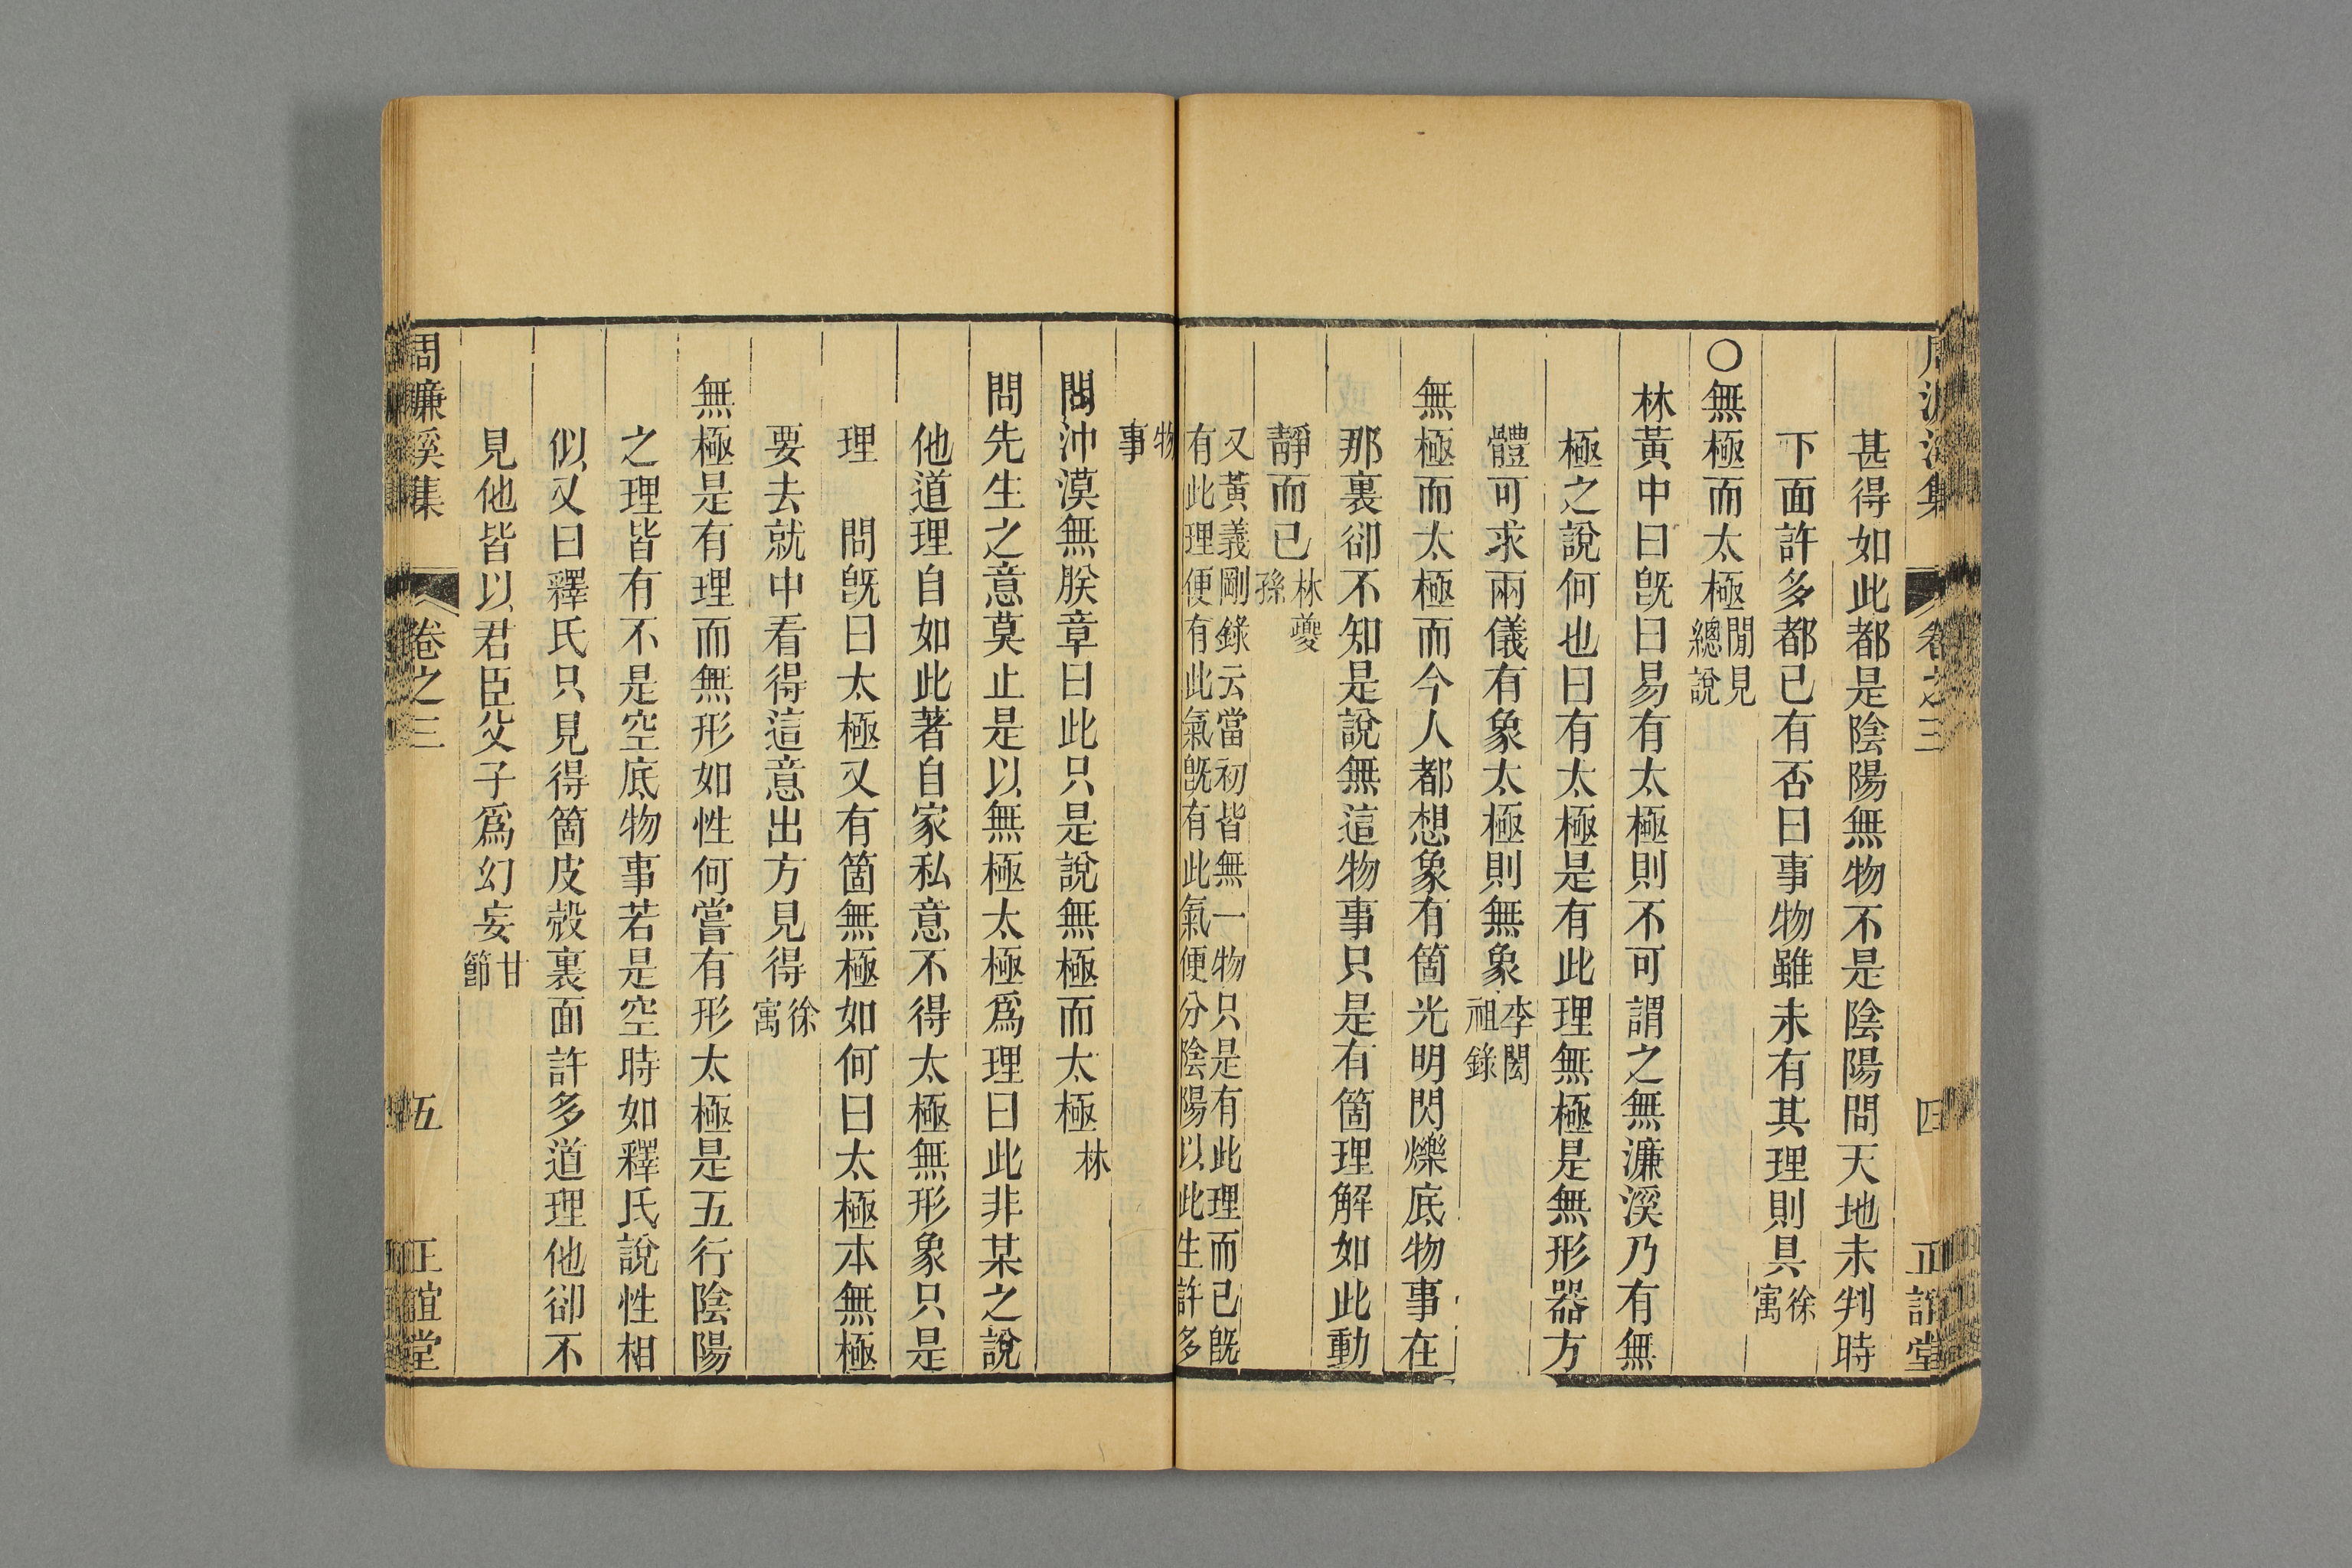 周濂溪集　卷之三　四　正誼堂
甚得如此都是陰陽無物不是陰陽問天地未判時
下面許多都已有否曰事物雖未有其理則具徐寓
〇無極而太極閒見總說
林黃中曰旣曰易有太極則不可謂之無濂溪乃有無
極之說何也曰有太極是有此理無極是無形器方
體可求兩儀有象太極則無象李閎祖錄
無極而太極而今人都想象有箇光明閃爍底物事在
那裏卻不知是說無這物事只是有箇理解如此動
靜而已林夔孫
又黃義剛錄云當初皆無一物只是有此理而已旣
有此理便有此氣旣有此氣便分陰陽以此生許多
物事
問沖漠無朕章曰此只是說無極而太極林
問先生之意莫止是以無極太極爲理曰此非某之說
他道理自如此著自家私意不得太極無形象只是
理　問旣曰太極又有箇無極如何曰太極本無極
要去就中看得這意出方見得徐寓
無極是有理而無形如性何嘗有形太極是五行陰陽
之理皆有不是空底物事若是空時如釋氏說性相
似又曰釋氏只見得箇皮殼裏面許多道理他卻不
見他皆以君臣父子爲幻妄甘節
周濂溪集　卷之三　五　正誼堂